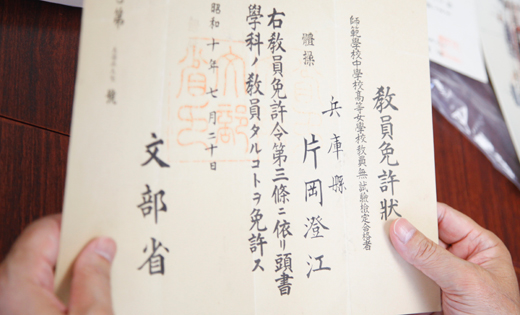 教員免許狀
師範學校中學校高等女學校教員無試驗檢定合格者
兵庫縣
片岡澄江
體操
右教員免許令第三條ニ依リ頭書
學科ノ教員タルコトヲ免許ス
昭和十年七月二十日
文部省
文部省印
號